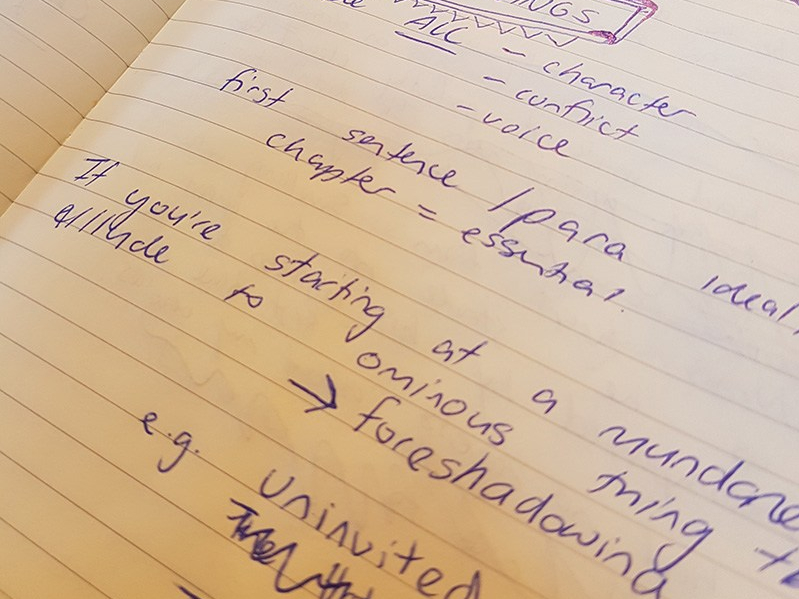 INGS
ACC - character
- conflict
- voice
first sentence / para ideal
chapter = essential.
If you're starting at a mundane
allude to ominous thing t
→ foreshadowing
e.g. Uninvited